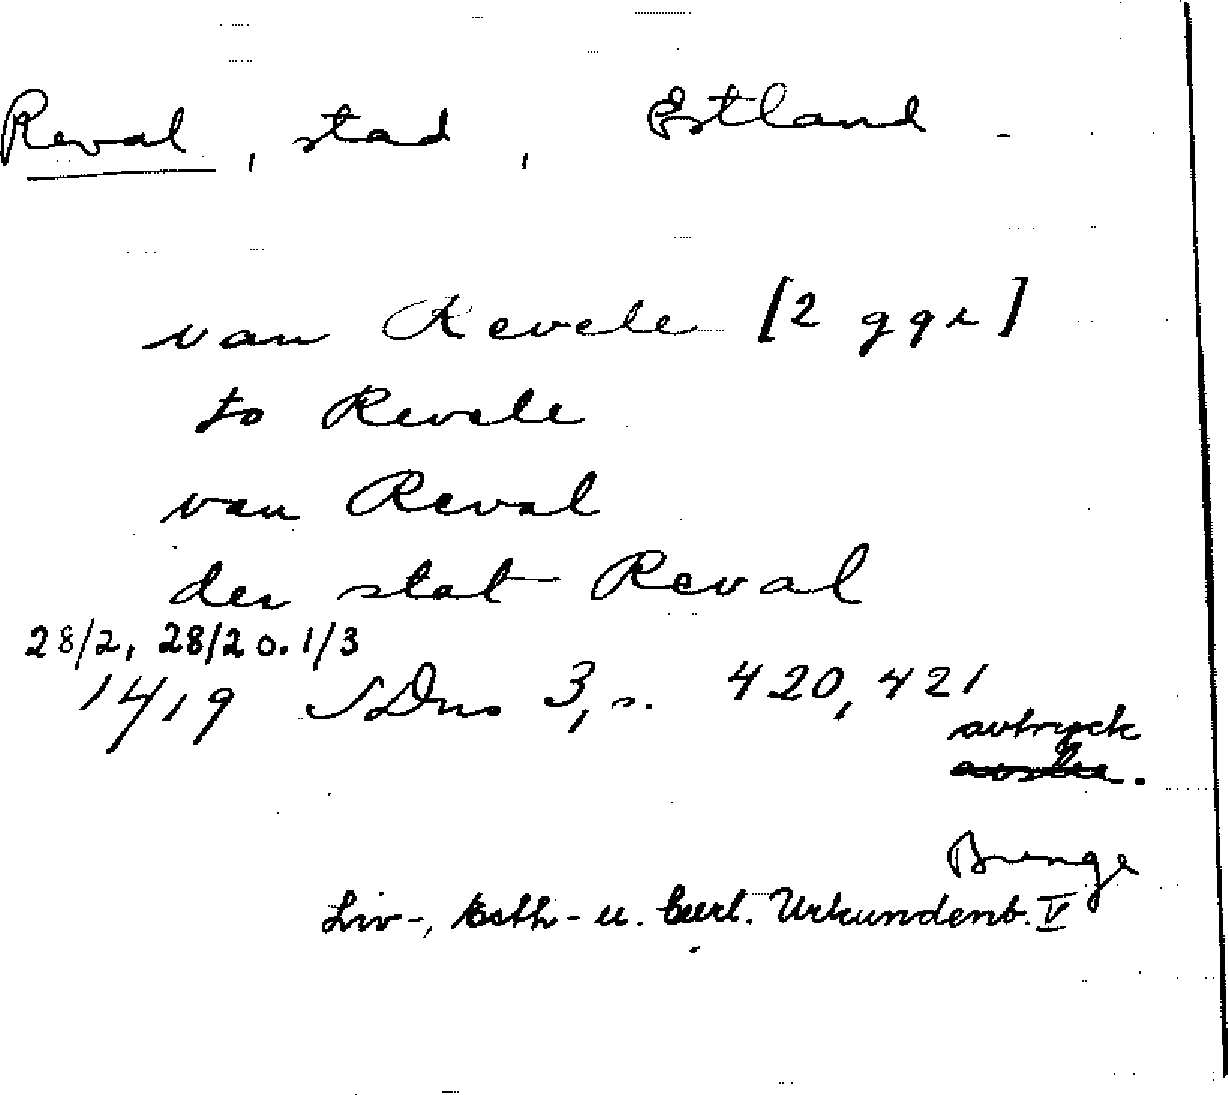 Reval, stad, Estland
van Revele [2 ggr]
to Revele
van Reval
der stat Reval
28/2, 28/2 o. 1/3
1419 SDns 3, s. 420, 421
avtryck
Bunge
Liv-, Esth- u. Curl. Urkundenb. V